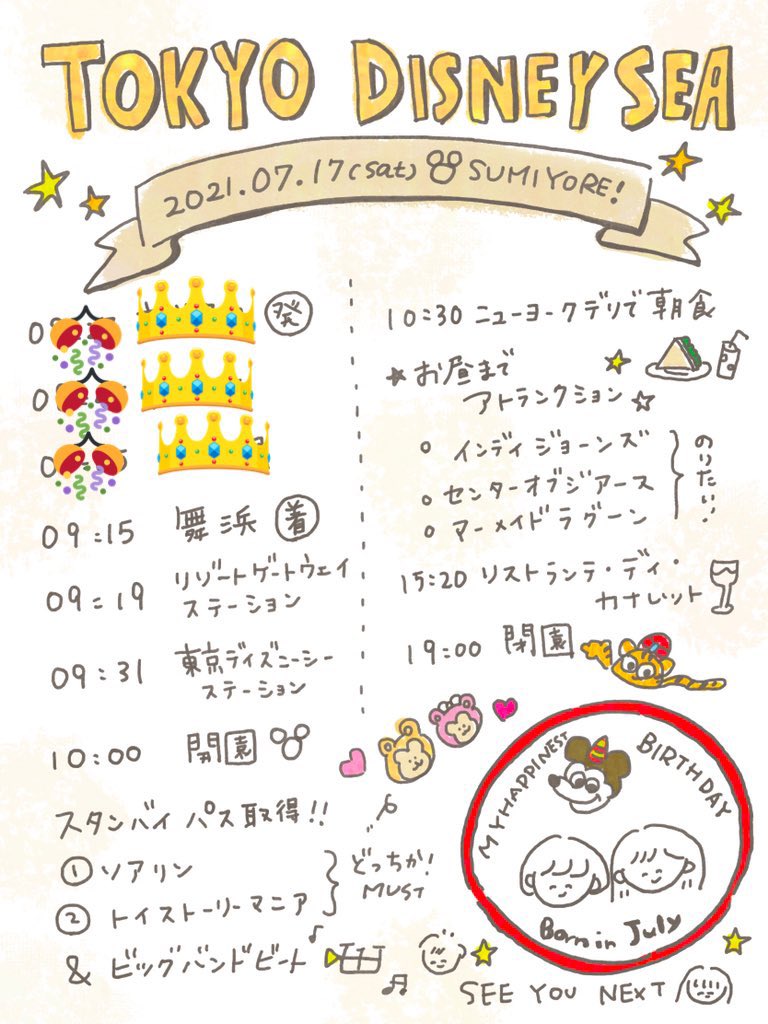 TOKYO DISNEYSEA
2021.07.17(sat) SUMIYORE!
発
09:15 舞浜 着
09:19 リゾートゲートウェイ
ステーション
09:31 東京ディズニーシー
ステーション
10:00 開園
スタンバイ パス取得!!
① ソアリン
② トイストーリーマニア
どっちか!
MUST
& ビッグバンドビート
10:30 ニューヨークデリで朝食
☆お昼まで
アトランクション☆
○ インディジョーンズ
○ センターオブジアース
○ マーメイドラグーン
のりたい!
15:20 リストランテ・ディ・
カナレット
19:00 閉園
MY HAPPINEST BIRTHDAY
Born in July
SEE YOU NEXT